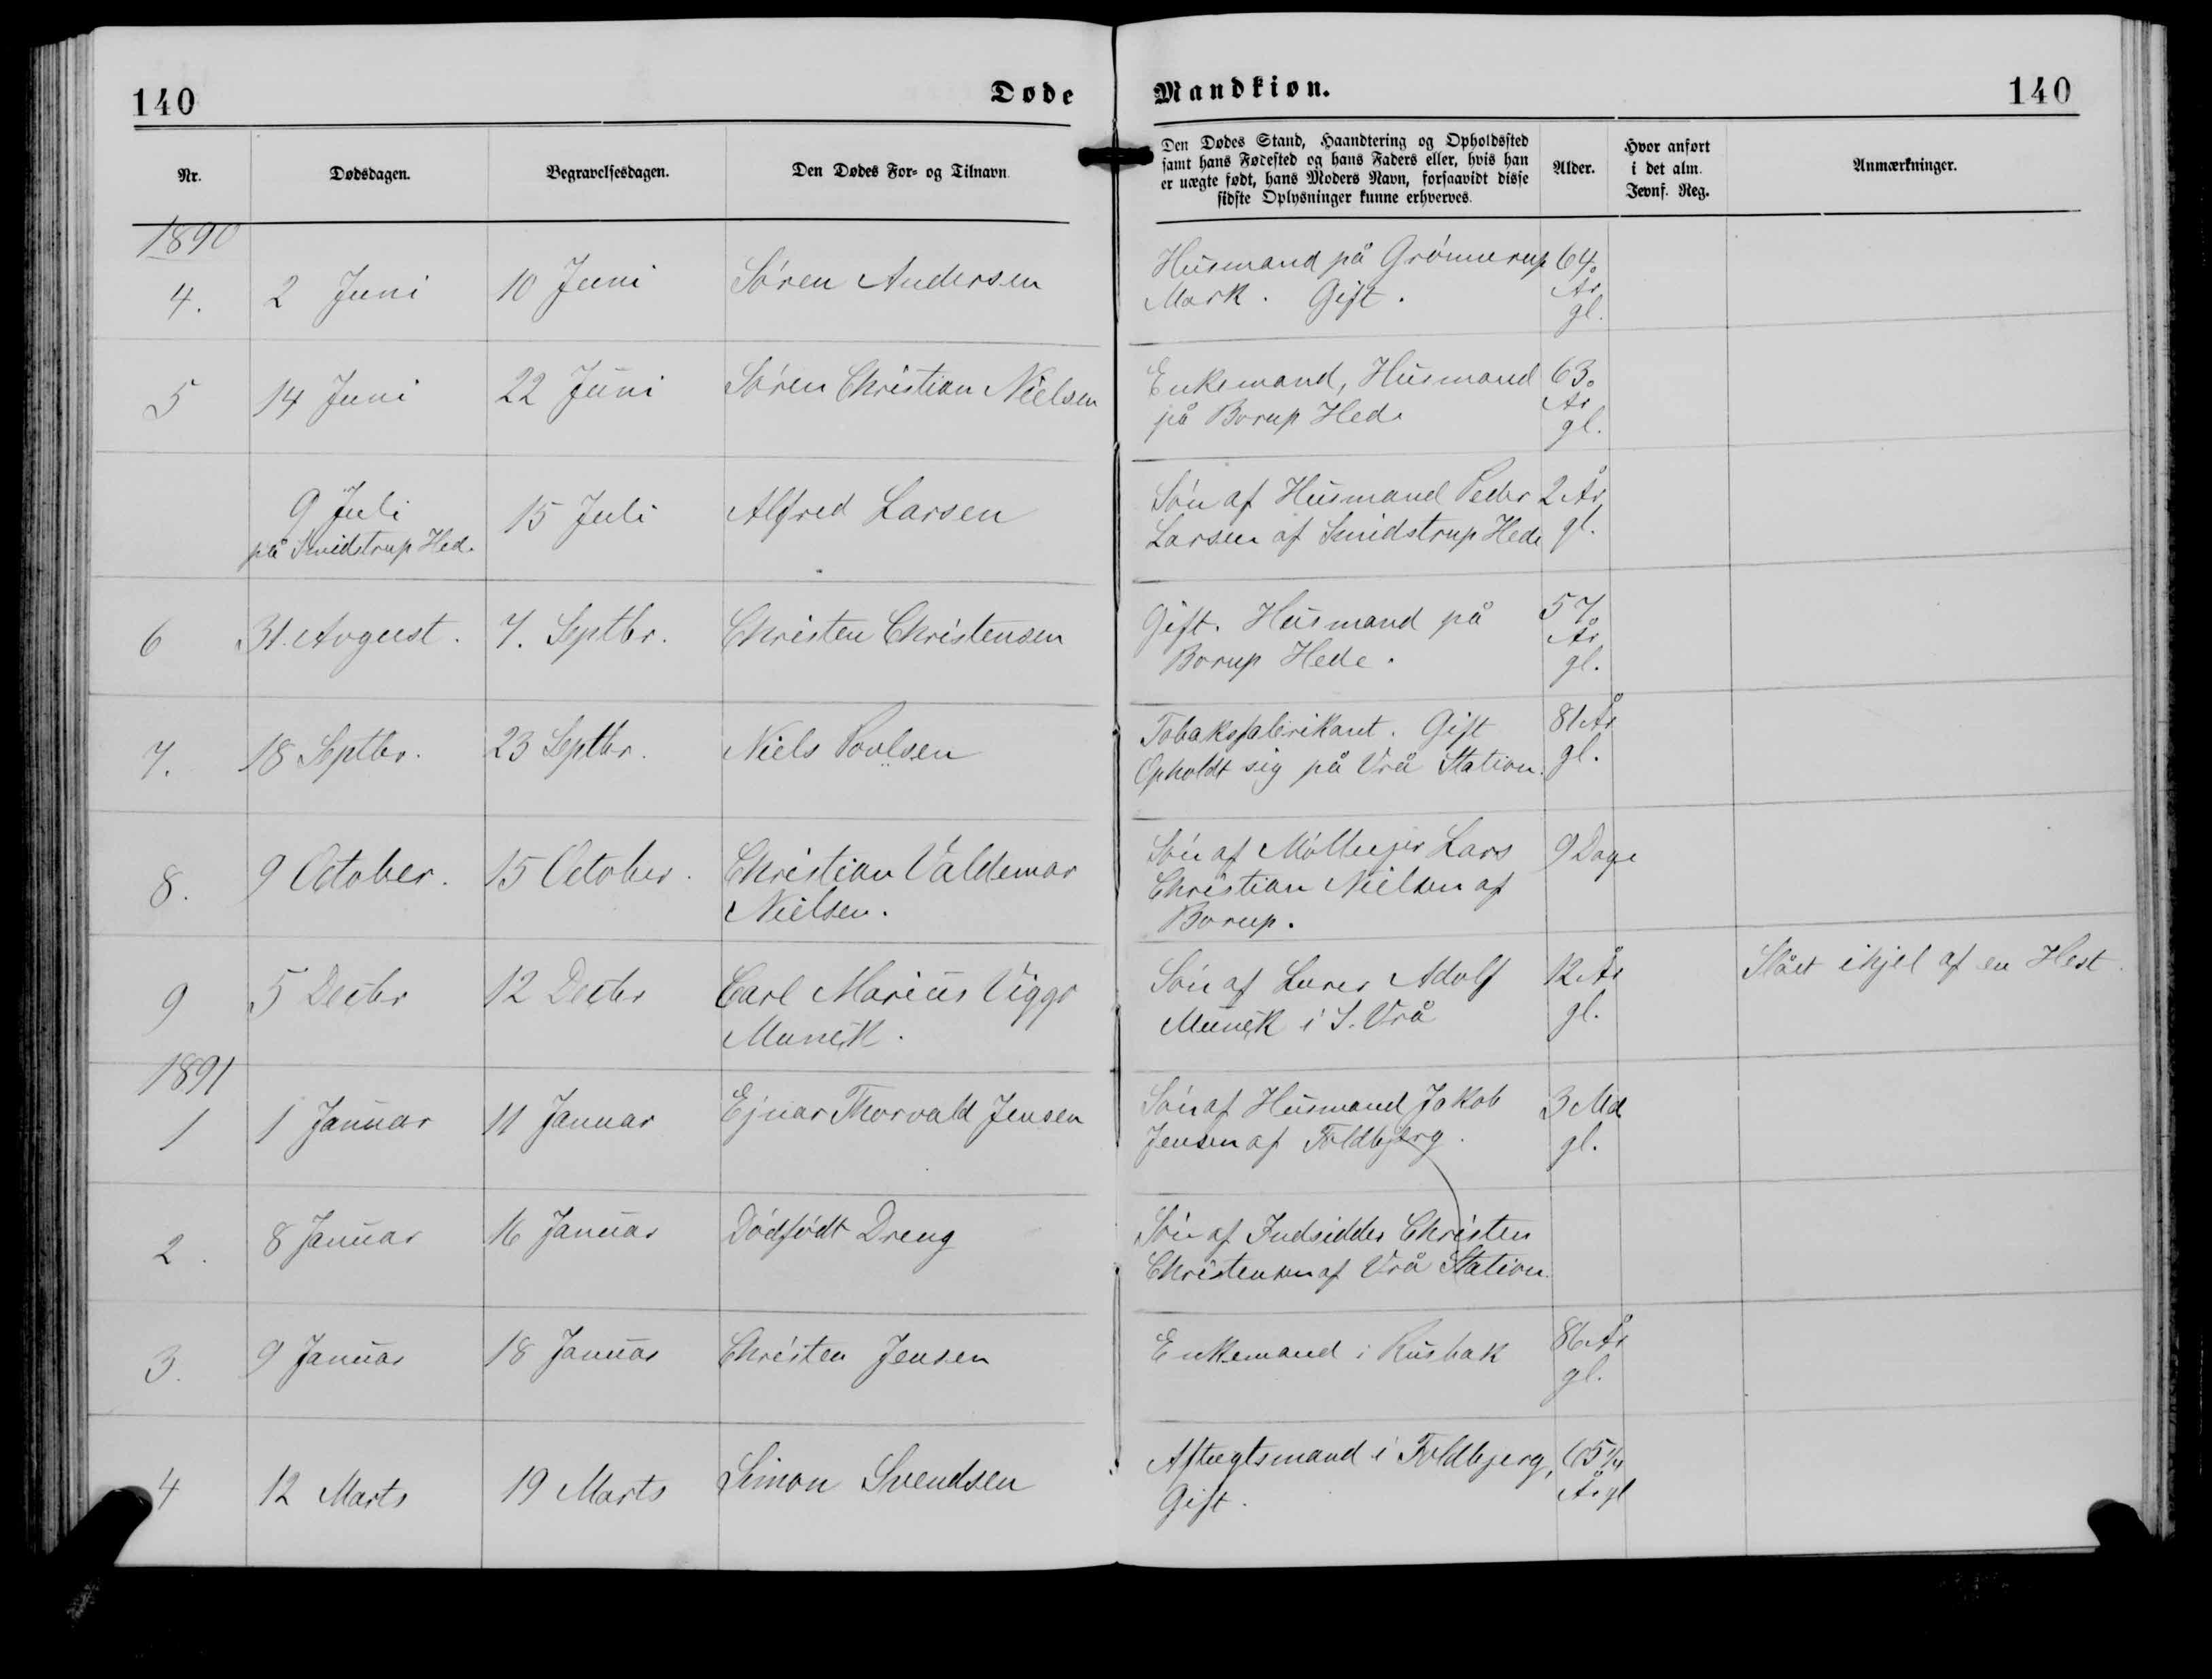 140 Døde Mandkiøn. 140
Nr. Dødsdagen. Begravelsesdagen. Den Dødes For- og Tilnavn
Den Dødes Stand, Haandtering og Opholdssted
samt hans Fødested og hans Faders eller, hvis han
er uægte født, hans Moders Navn, forsaavidt disse
sidste Oplysninger kunne erhverves.
Alder.
Hvor anført
i det alm.
Jevnf. Reg.
Anmærkninger.
1890
4. 2 Juni 10 Juni Søren Andersen Husmand på Grønnerup 64
Mark. Gift. År
gl.
5 14 Juni 22 Juni Søren Christian Nielsen Enkemand, Husmand 63
på Borup Hede År
gl.
9 Juli 15 Juli Alfred Larsen Søn af Husmand Peder 2 År
på Smidstrup Hede Larsen af Smidstrup Hede gl.
6 31. August. 7. Septbr. Christen Christensen Gift. Husmand på 57
Borup Hede. År
gl.
7. 18 Septbr. 23 Septbr. Niels Poulsen Tobaksfabrikant. Gift 81 År
Opholdt sig på Vrå Station. gl.
8. 9 October. 15 October. Christian Valdemar Søn af Mølleejer Lars 9 Dage
Nielsen. Christian Nielsen af
Borup.
9 5 Decbr 12 Decbr Carl Marius Viggo Søn af Lærer Adolf 12 År Slået ihjel af en Hest.
Munck. Munck i S. Vrå gl.
1891
1 1 Januar 11 Januar Ejnar Thorvald Jensen Søn af Husmand Jakob 3 Md
Jensen af Foldbjerg. gl.
2. 8 Januar 16 Januar Dødfødt Dreng Søn af Indsidder Christen
Christensen af Vrå Station.
3. 9 Januar 18 Januar Christen Jensen Enkemand i Rusbak 86 År
gl.
4 12 Marts 19 Marts Simon Svendsen Aftægtsmand i Foldbjerg, 65 1/4
Gift. År gl